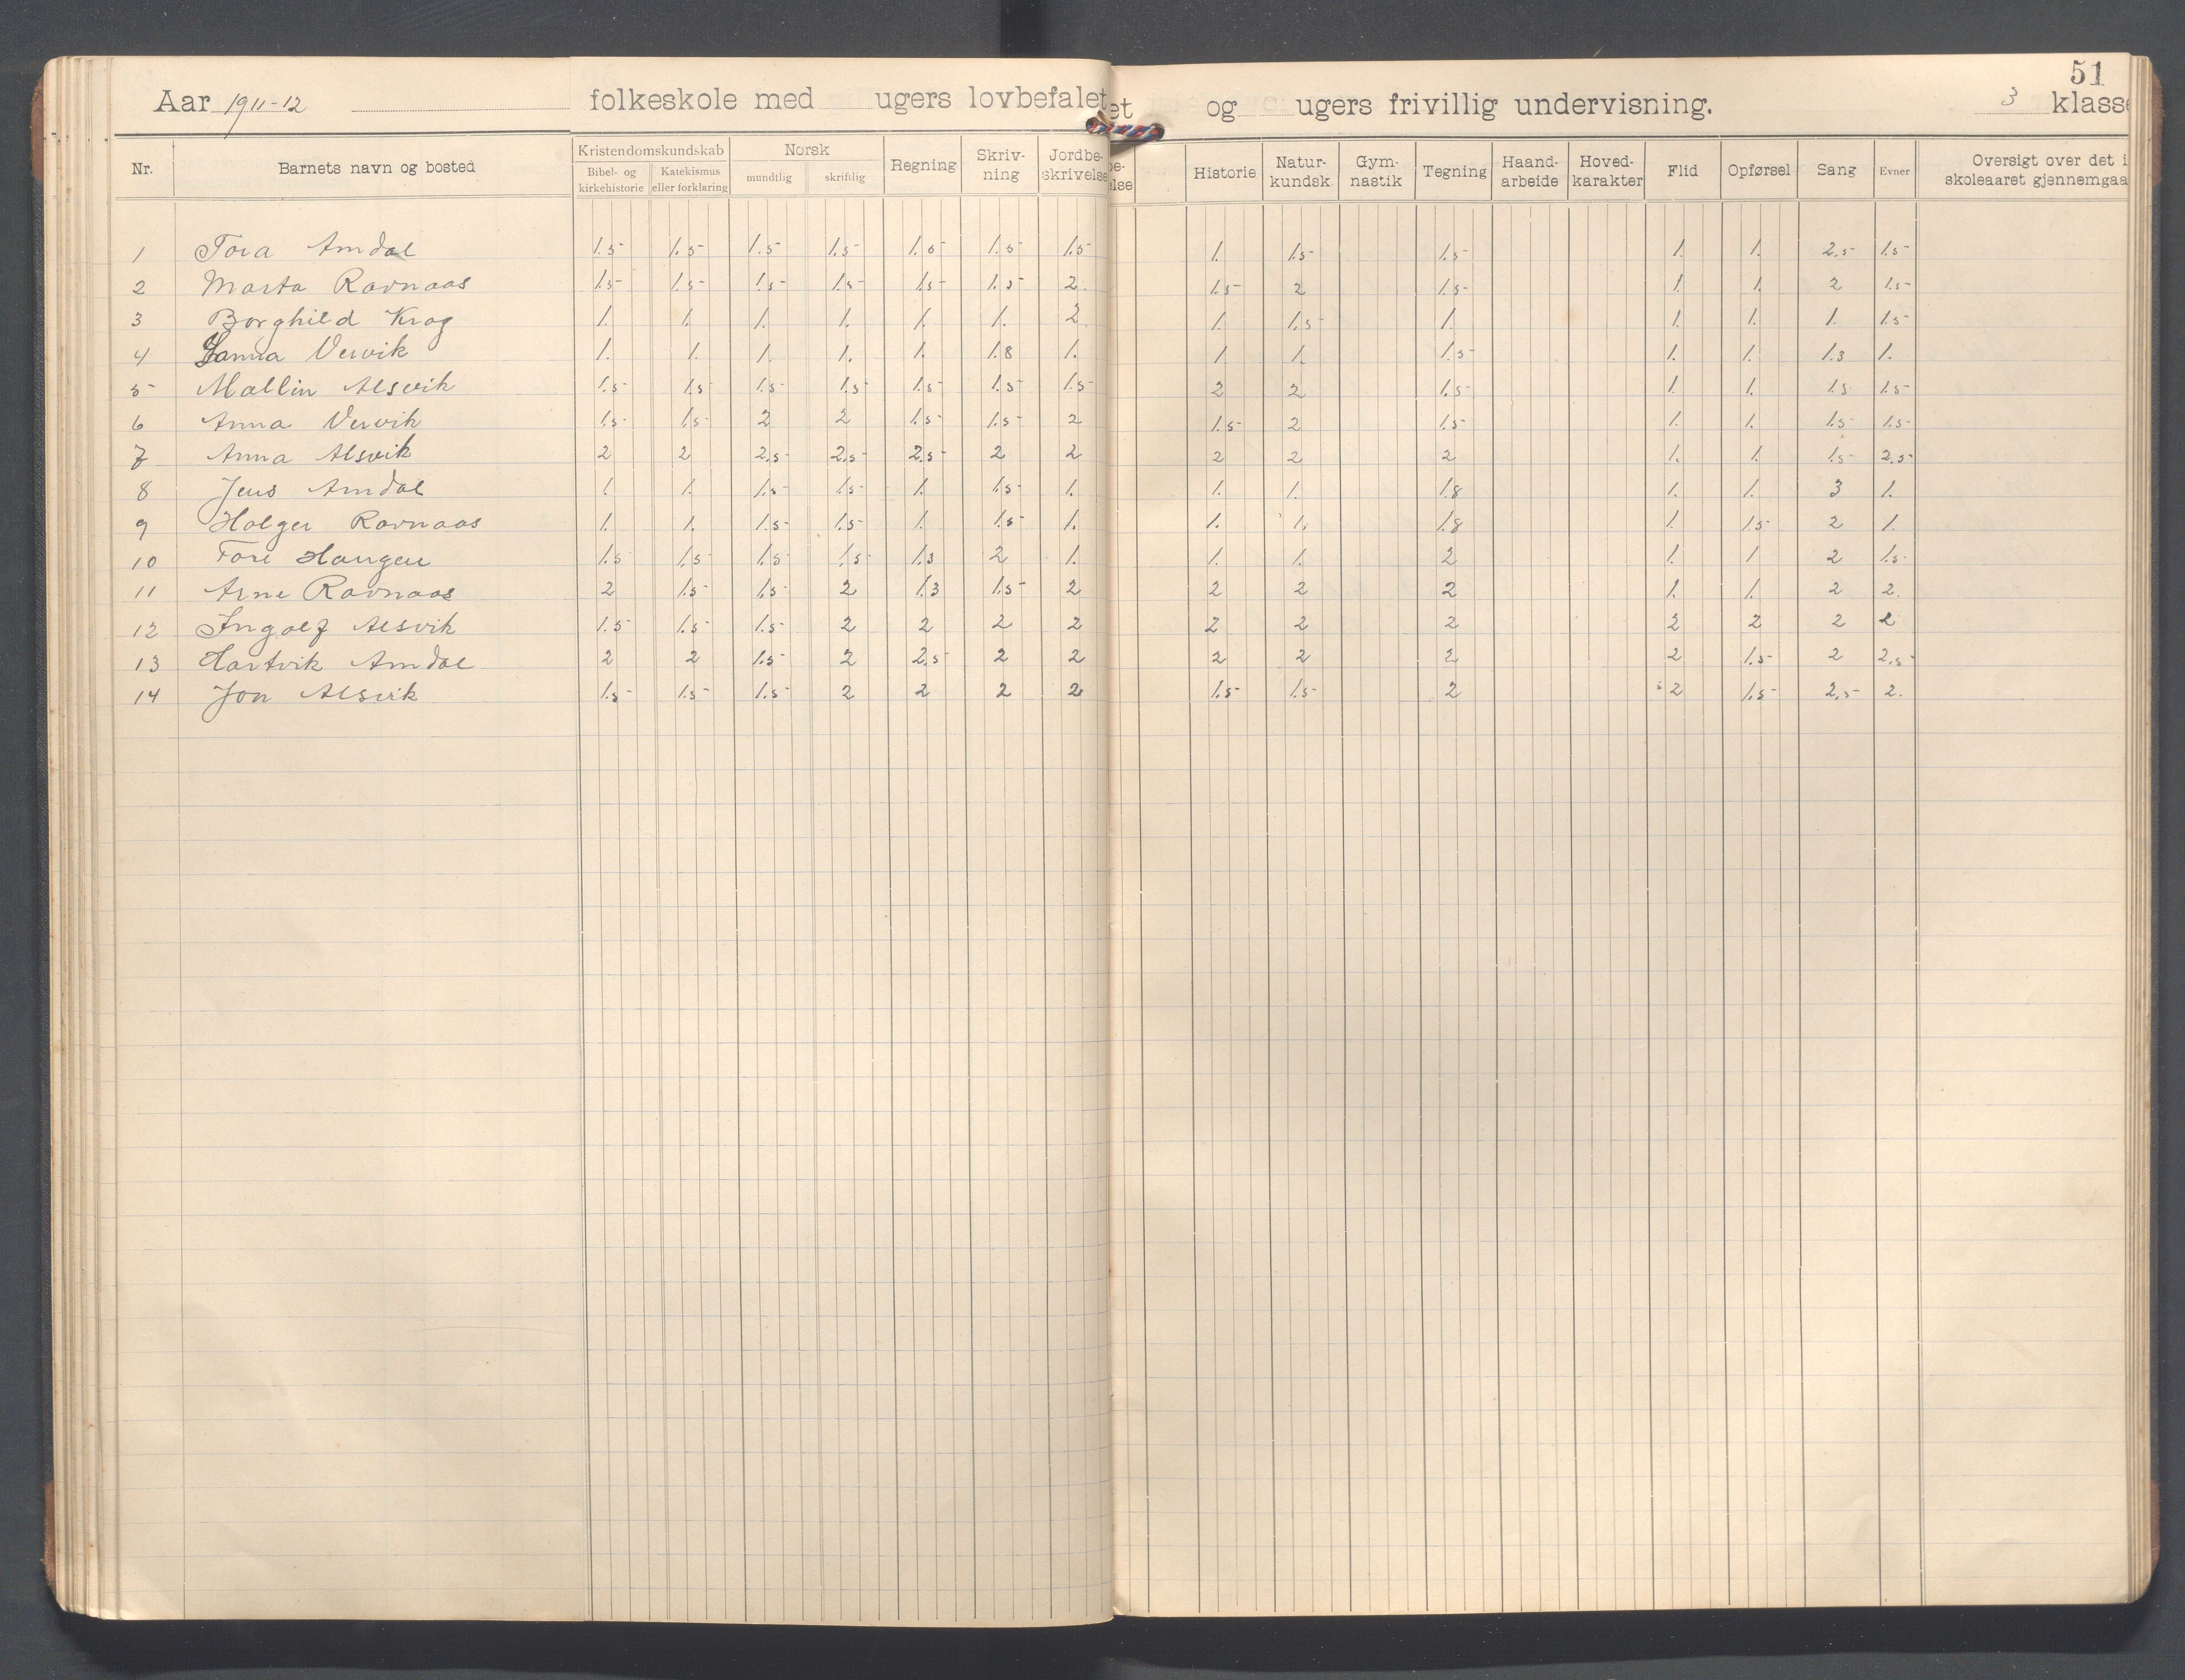 51
Aar 1911-12 folkeskole med ugers lovbefalet et og ugers frivillig undervisning. 3 klasse
Nr. Barnets navn og bosted Kristendomskundskab Bibel- og kirkehistorie Katekismus eller forklaring Norsk mundtlig skriftlig Regning Skriv-ning Jordbe-skrivelse be-else Historie Natur-kundsk Gym-nastik Tegning Haand-arbeide Hoved-karakter Flid Opførsel Sang Evner Oversigt over det i skoleaaret gjennemgaa
1 Tora Amdal 1.5 1.5 1.5 1.5 1.5 1.5 1.5 1. 1.5 1.5 1. 1. 2.5 1.5
2 Marta Ravnaas 1.5 1.5 1.5 1.5 1.5 1.5 2. 1.5 2 1.5 1. 1. 2 1.5
3 Borghild Krog 1. 1. 1. 1. 1. 1. 2. 1. 1.5 1. 1. 1. 1. 1.5
4 Sanna Vervik 1. 1. 1. 1. 1. 1.8 1. 1 1. 1.5 1. 1. 1.3 1.
5 Mallin Alsvik 1.5 1.5 1.5 1.5 1.5 1.5 1.5 2 2 1.5 1. 1. 1.5 1.5
6 Anna Vervik 1.5 1.5 2 2 1.5 1.5 2 1.5 2 1.5 1. 1. 1.5 1.5
7 Anna Alsvik 2 2 2.5 2.5 2.5 2 2 2 2 2 1. 1. 1.5 2.5
8 Jens Amdal 1. 1. 1.5 1.5 1. 1.5 1. 1. 1. 1.8 1. 1. 3 1.
9 Holger Ravnaas 1. 1. 1.5 1.5 1. 1.5 1. 1. 1. 1.8 1. 1.5 2 1.
10 Tore Haugen 1.5 1.5 1.5 1.5 1.3 2 1. 1. 1. 2 1. 1 2 1.5
11 Arne Ravnaas 2 1.5 1.5 2 1.3 1.5 2 2 2 2 1. 1. 2 2.
12 Ingolf Alsvik 1.5 1.5 1.5 2 2 2 2 2 2 2 2 2 2 2
13 Hartvik Amdal 2 2 1.5 2 2.5 2 2 2 2 2 2 1.5 2 2.5
14 Jon Alsvik 1.5 1.5 1.5 2 2 2 2 1.5 1.5 2 2 1.5 2.5 2.